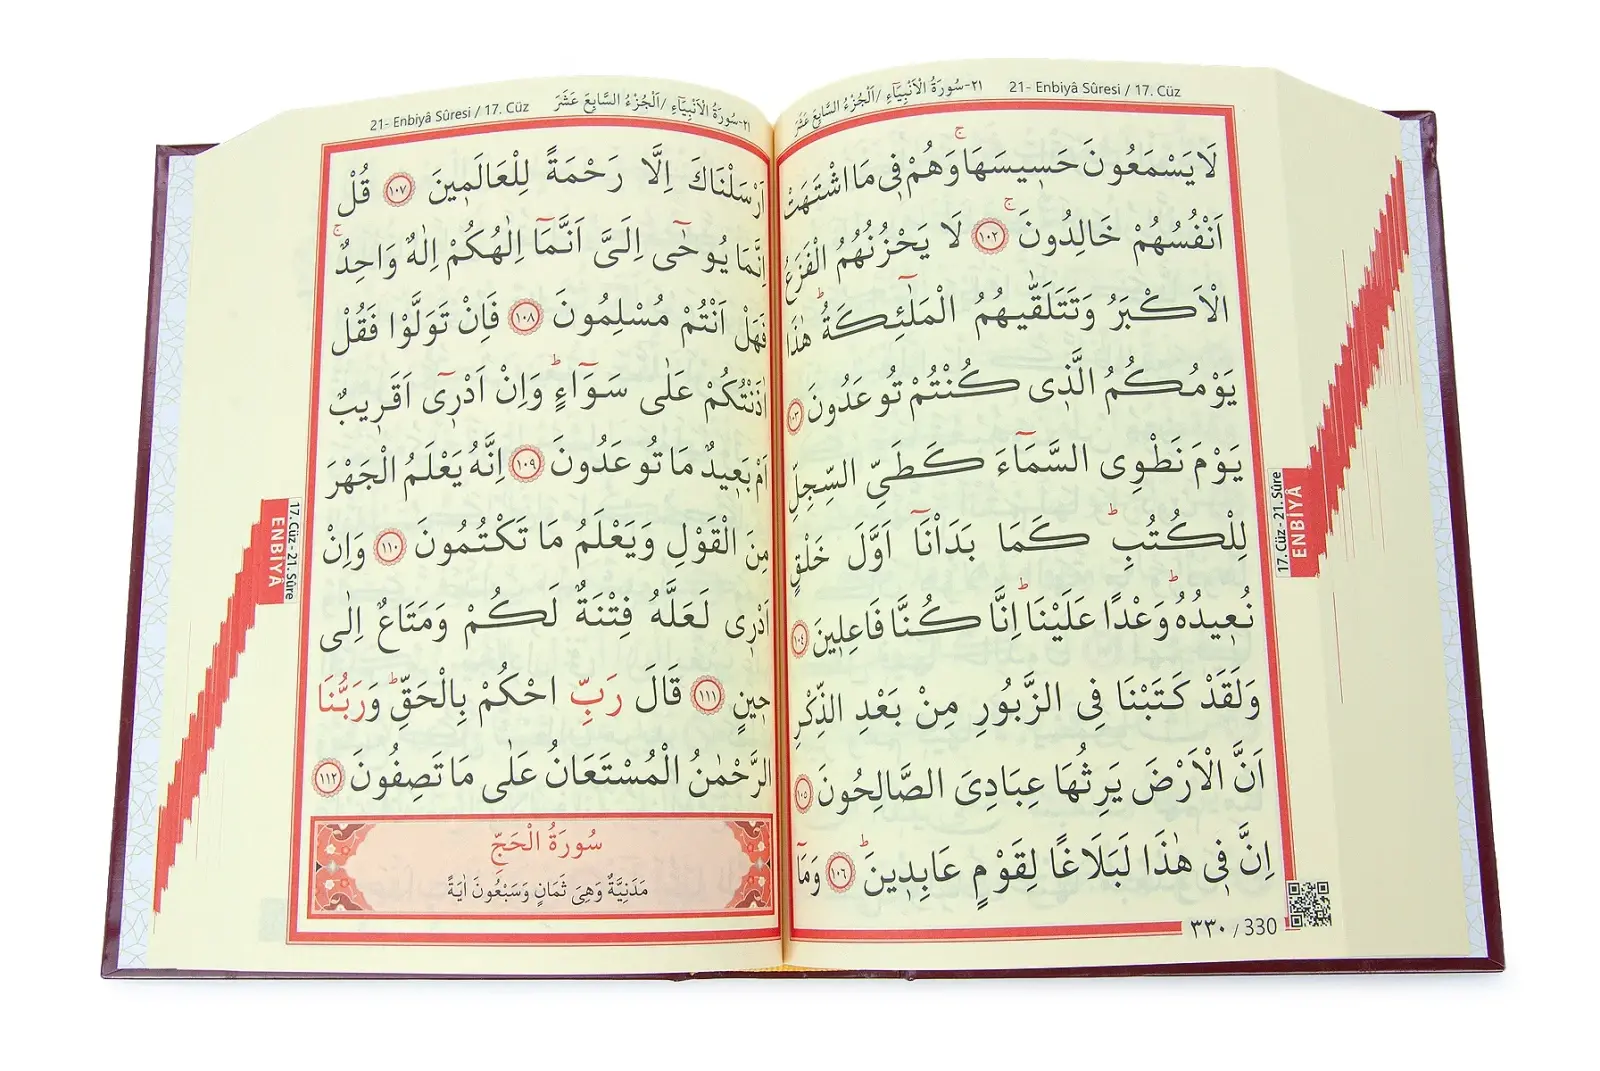 ٢١-سُورَةُ الْاَنْبِيَٓاءِ /اَلْجُزْءُ السَّابِعَ عَشَرَ 21- Enbiyâ Sûresi / 17. Cüz
لَا يَسْمَعُونَ حَس۪يسَهَاۚ وَهُمْ ف۪ى مَا اشْتَهَتْ
اَنْفُسُهُمْ خَالِدُونَۚ ﴿١٠٢﴾ لَا يَحْزُنُهُمُ الْفَزَعُ
الْاَكْبَرُ وَتَتَلَقّٰيهُمُ الْمَلٰٓئِكَةُۜ هٰذَا
يَوْمُكُمُ الَّذ۪ى كُنْتُمْ تُوعَدُونَ ﴿١٠٣﴾
يَوْمَ نَطْوِى السَّمَٓاءَ كَطَىِّ السِّجِلِّ
لِلْكُتُبِۜ كَمَا بَدَاْنَٓا اَوَّلَ خَلْقٍ
نُع۪يدُهُۜ وَعْدًا عَلَيْنَاۜ اِنَّا كُنَّا فَاعِل۪ينَ ﴿١٠٤﴾
وَلَقَدْ كَتَبْنَا فِى الزَّبُورِ مِنْ بَعْدِ الذِّكْرِ
اَنَّ الْاَرْضَ يَرِثُهَا عِبَادِىَ الصَّالِحُونَ ﴿١٠٥﴾
اِنَّ ف۪ى هٰذَا لَبَلَاغًا لِقَوْمٍ عَابِد۪ينَۜ ﴿١٠٦﴾ وَمَٓا
٣٣٠ / 330
17. Cüz - 21. Sûre
ENBİYÂ
21- Enbiyâ Sûresi / 17. Cüz ٢١-سُورَةُ الْاَنْبِيَٓاءِ /اَلْجُزْءُ السَّابِعَ عَشَرَ
اَرْسَلْنَاكَ اِلَّا رَحْمَةً لِلْعَالَم۪ينَ ﴿١٠٧﴾ قُلْ
اِنَّمَا يُوحٰٓى اِلَىَّ اَنَّمَٓا اِلٰهُكُمْ اِلٰهٌ وَاحِدٌۚ
فَهَلْ اَنْتُمْ مُسْلِمُونَ ﴿١٠٨﴾ فَاِنْ تَوَلَّوْا فَقُلْ
اٰذَنْتُكُمْ عَلٰى سَوَٓاءٍۜ وَاِنْ اَدْر۪ٓى اَقَر۪يبٌ
اَمْ بَع۪يدٌ مَا تُوعَدُونَ ﴿١٠٩﴾ اِنَّهُ يَعْلَمُ الْجَهْرَ
مِنَ الْقَوْلِ وَيَعْلَمُ مَا تَكْتُمُونَ ﴿١١٠﴾ وَاِنْ
اَدْر۪ى لَعَلَّهُ فِتْنَةٌ لَكُمْ وَمَتَاعٌ اِلٰى
ح۪ينٍ ﴿١١١﴾ قَالَ رَبِّ احْكُمْ بِالْحَقِّۜ وَرَبُّنَا
الرَّحْمٰنُ الْمُسْتَعَانُ عَلٰى مَا تَصِفُونَ ﴿١١٢﴾
سُورَةُ الْحَجِّ
مَدَنِيَّةٌ وَهِىَ ثَمَانٍ وَسَبْعُونَ اٰيَةً
17. Cüz - 21. Sûre
ENBİYÂ